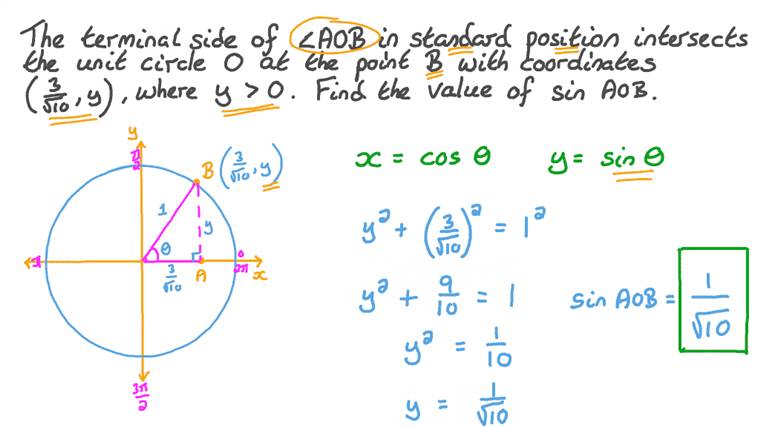 The terminal side of ∠AOB in standard position intersects
the unit circle O at the point B with coordinates
(3/√10, y), where y > 0. Find the value of sin AOB.
y
π/2
B (3/√10, y)
1
y
θ
π
0
2π
x
3/√10
A
3π/2
x = cos θ
y = sin θ
y² + (3/√10)² = 1²
y² + 9/10 = 1
sin AOB = 1/√10
y² = 1/10
y = 1/√10